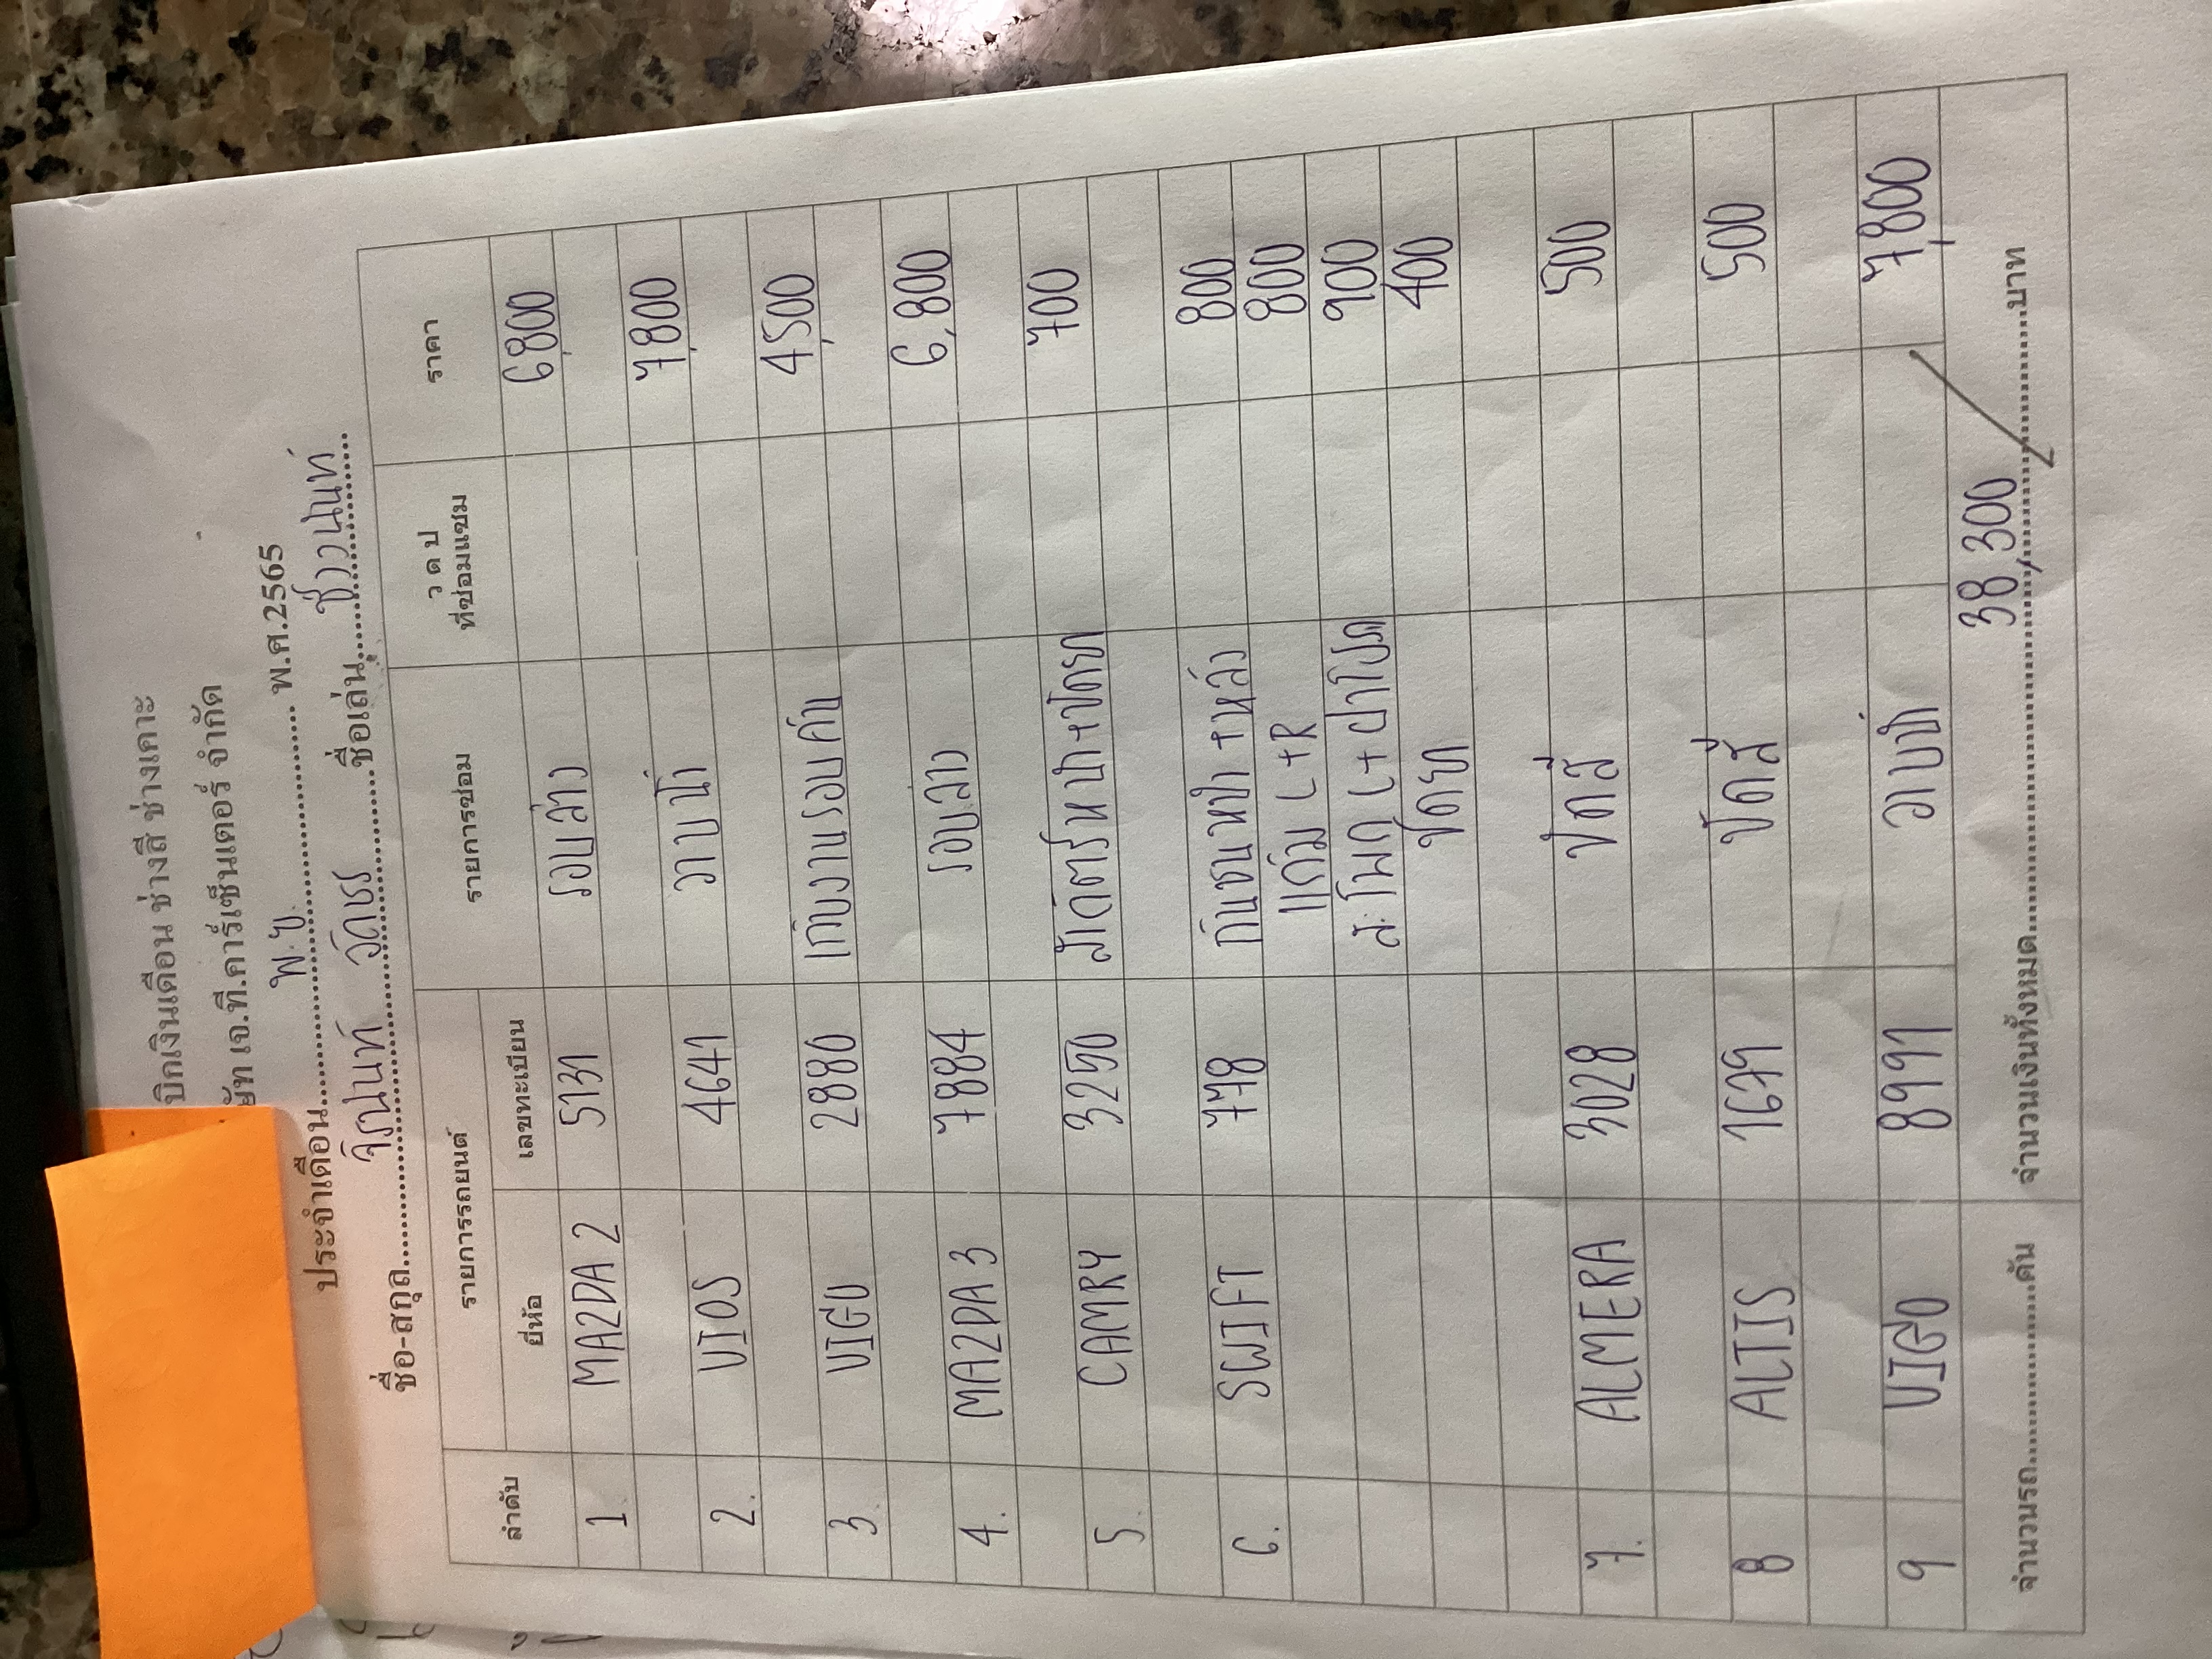 บิกเงินเดือน ช่างสี ช่างเคาะ
ษัท เจ.ที.คาร์เซ็นเตอร์ จำกัด
ประจำเดือน พ.ย. พ.ศ.2565
ชื่อ-สกุล จิรนนท์ ชื่อเล่น
ลำดับ รายการรถยนต์ รายการซ่อม ว ด ป ที่ซ่อมแซม ราคา
ยี่ห้อ เลขทะเบียน
1. MAZDA 2 5131 รอบล่าง 6,800
2. VIOS 4641 วาบน้ำ 7,800
3. VIGO 2880 เก็บงานรอบคัน 4,500
4. MAZDA 3 7884 รอบล่าง 6,800
5. CAMRY 3250 700
6. SWIFT 778 กันชนหน้า + หลัง 800
แก้ม L + R 800
ส.โพก L + ฝาโปรง 900
ขัดยา 400
7. ALMERA 3028 ขัดสี 500
8 ALTIS 1679 ขัดสี 500
9 VIGO 8991 วาบน้ำ 7,800
จำนวนรถ คัน จำนวนเงินทั้งหมด 38,300 บาท